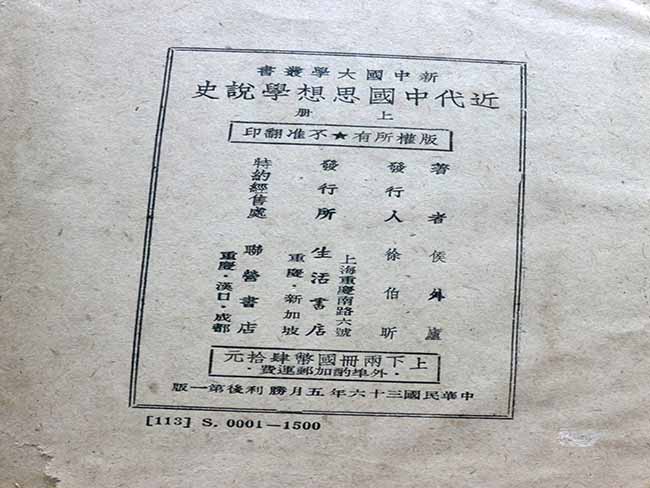 新中國大學叢書
近代中國思想學說史
上冊
版權所有★不准翻印
著者 侯外廬
發行人 徐伯昕
發行所 生活書店
上海重慶南路六號
重慶·新加坡
特約經售處 聯營書店
重慶·漢口·成都
上下兩冊國幣肆拾元
·外埠酌加郵運費·
中華民國三十六年五月勝利後第一版
[113] S. 0001—1500